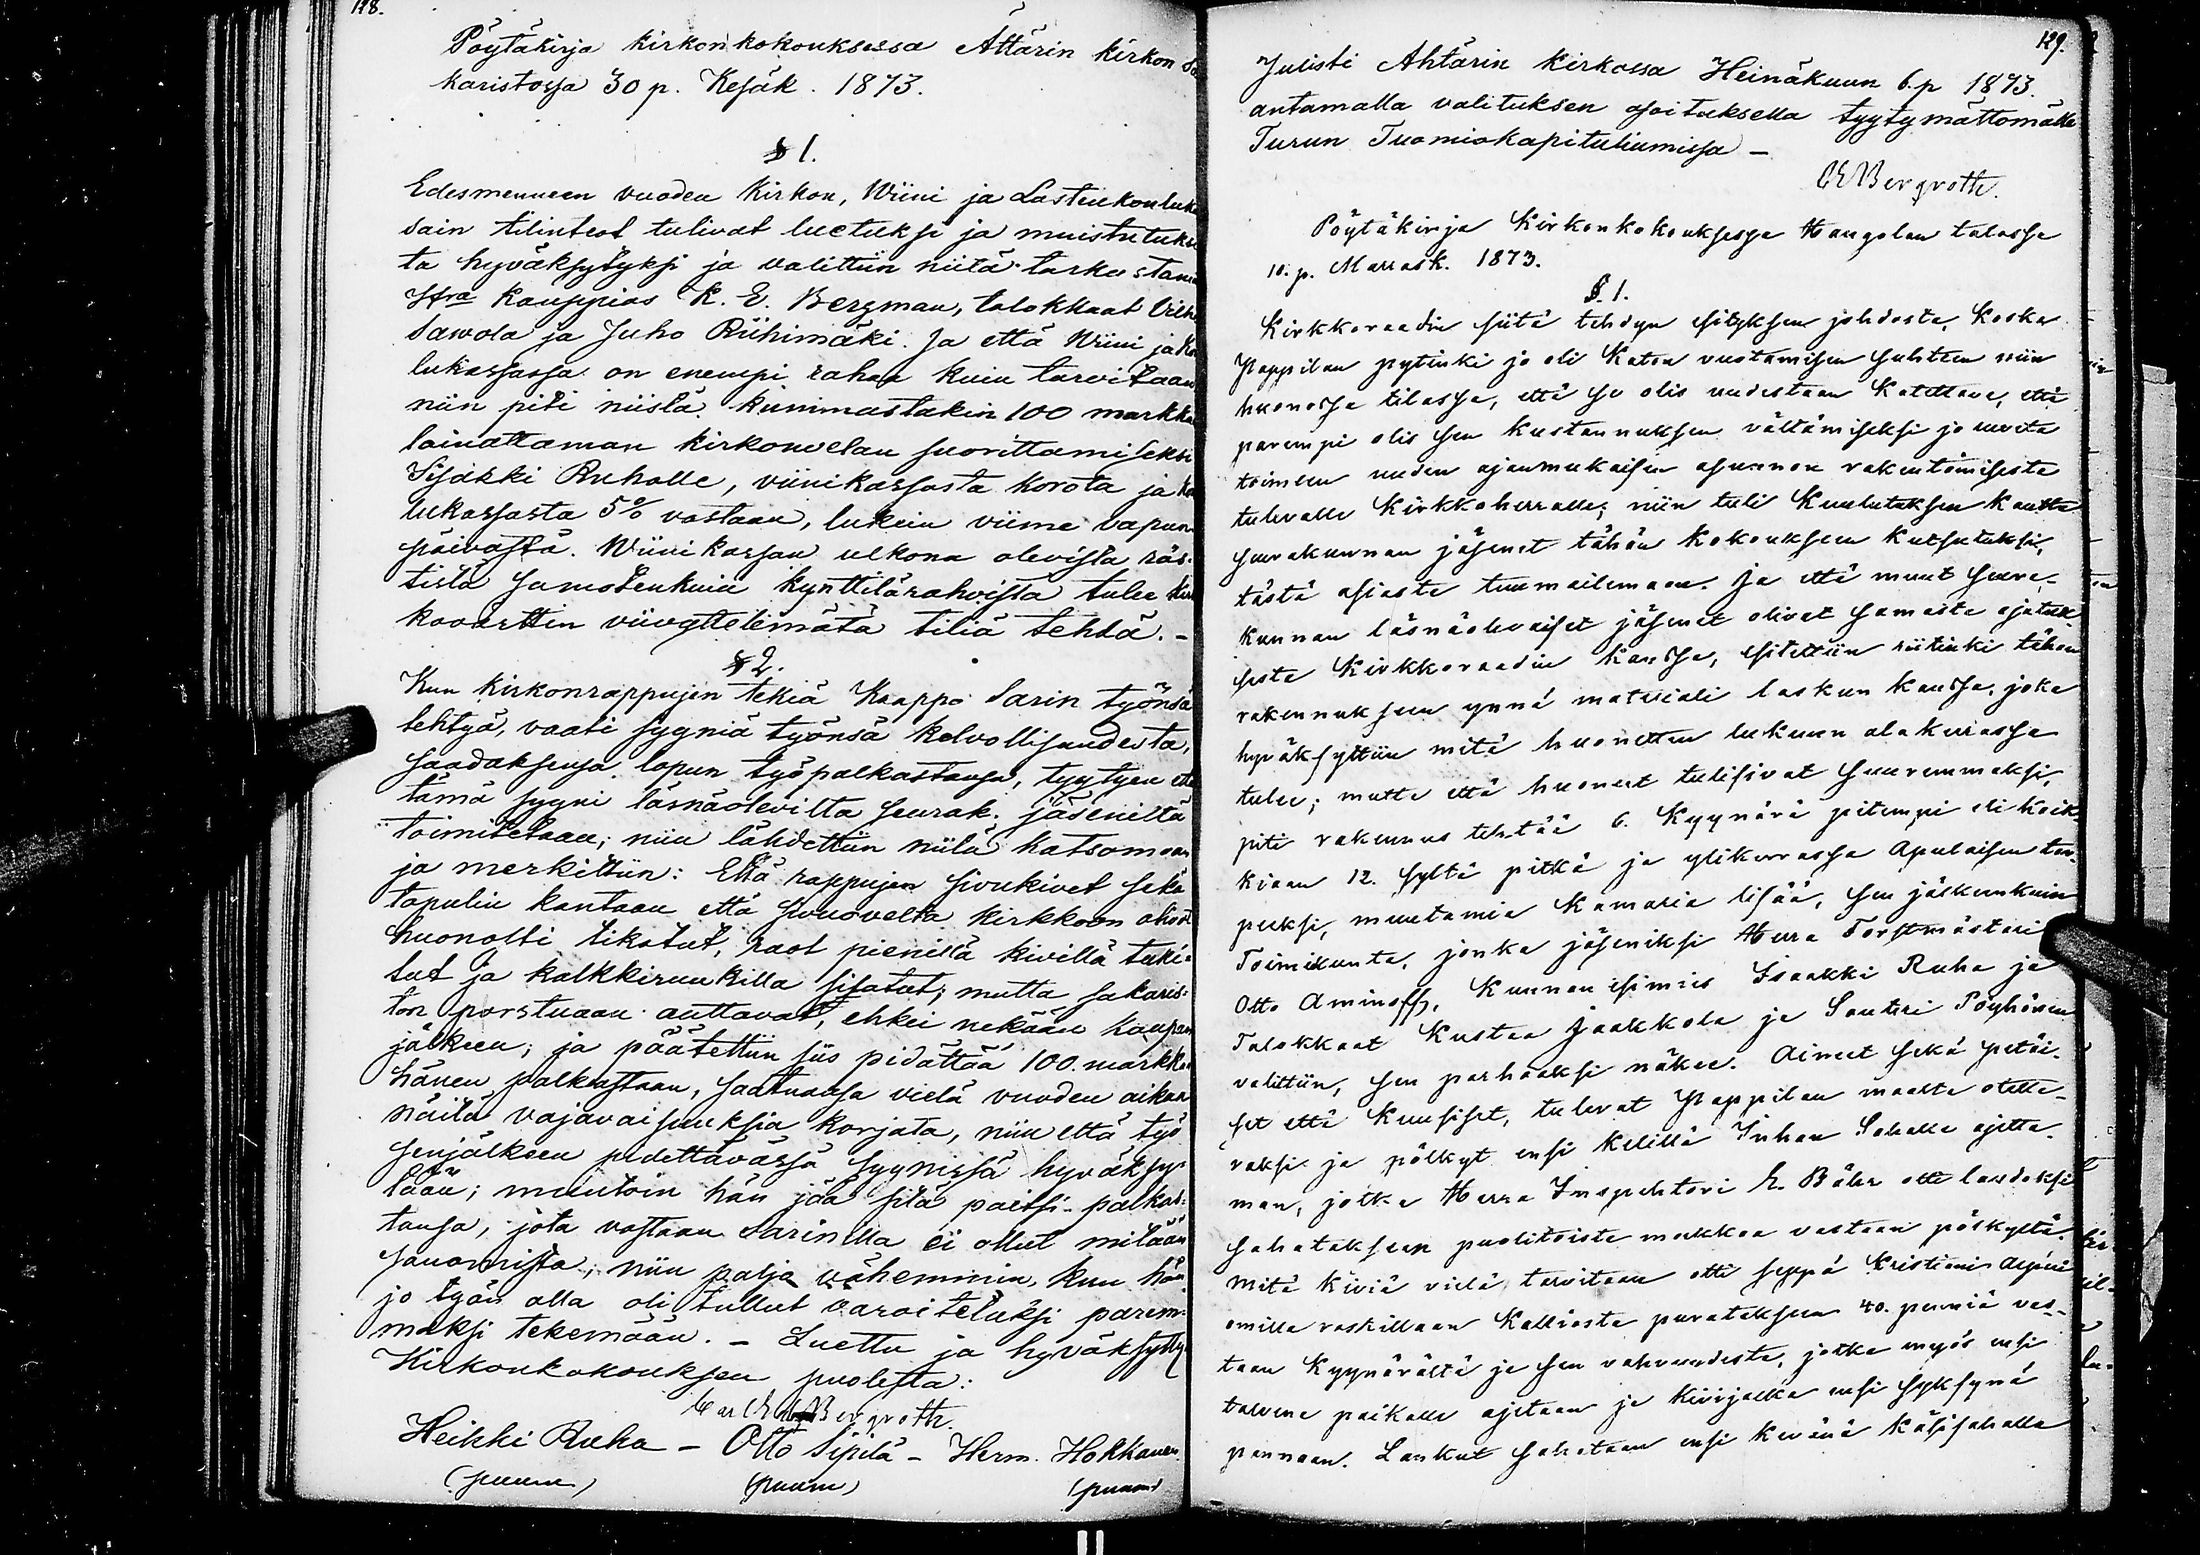 128.
Pöytäkirja kirkonkokouksessa Ättärin kirkon sa
karistossa 30 p. Kesäk. 1873.
§ 1.
Edesmenneen vuoden Kirkon, Wiini ja Lastenkouluka
sain tilinteot tulivat luetuksi ja muistutukse
ta hyväksytyksi ja valittiin niitä tarkustam
Hra Kauppias K. E. Bergman, talokkaat Vilh
Sawola ja Juho Riihimäki. Ja että Wiini ja Ko
lukassassa on enempi rahaa kuin tarvitaan
niin piti niistä kummastakin 100 markka
lainattaman kirkonvelan suorittamiseksi
Isäkki Ruhalle, viinikassasta korota ja ko
lukassasta 5% vastaan, lukein viime vapun
päivästä. Wiinikassan ulkona olevista räs-
tistä samotenkuin kynttilärahoista tulee
kvoarttin viivyttelimätä tiliä tehdä. –
§ 2.
Kun kirkonrappujen tekiä Kaappo Sarin työnsä
tehtyä, vaati syyniä työnsä kelvollisuudesta,
saadaksensa lopun työpalkastansa, tyytyen että
tämä syyni läsnäolevilta seurak. jäseniltä
toimitetaan; niin lähdettiin niitä katsomaan
ja merkittiin: Että rappujen sivukivet sekä
tapuliin kantaan että sivuovelta kirkkoon olivat
huonosti tikatut, raot pienillä kivillä tuki-
tut ja kalkkiruukilla sisatut; mutta sakaris-
ton porstuaan auttavat, ehkei nekään kaupan
jälkeen; ja päätettiin siis pidättää 100. markkaa
hänen palkastaan, saatuansa vielä vuoden aikana
näitä vajavaisuuksia korjata, niin että työ
senjälkeen pidettävässä syynissä hyväksy-
tään; muutoin hän jää sitä paitsi palkas-
tansa, jota vastaan Sarinilla ei ollut mitään
sanomista, niin paljo vähemmin, kun hän
jo työn alla oli tullut varoitetuksi parem-
maksi tekemään. – Luettu ja hyväksytty
Kirkonkokouksen puolesta:
Carl Bergroth.
Heikki Ruha – Otto Sipilä – Herm. Hokkanen.
(puum) (puum) (puum)
129.
Julisti Ähtärin kirkossa Heinäkuun 6. p 1873.
antamalla valituksen osoituksella tyytymättömälle
Turun Tuomiokapituliumissa –
CEBergroth.
Pöytäkirja Kirkonkokouksessa Haugolan talossa
10. p. Marrask. 1873.
§. 1.
Kirkkoraadin siitä tehdyn esityksen johdosta, koska
Pappilan pytinki jo oli Katon vuotamisen suhteen niin
huonossa tilassa, että se olis uudestaan Katettava, että
parempi olis sen kustannuksen välttämiseksi jo ruveta
toimeen uuden ajanmukaisen asunnon rakentamisesta
tulevalle Kirkkoherralle; niin tuli Kuulutuksen kautta
seurakunnan jäsenet tähän kokouksen kutsutuksi,
tästä asiasta tuumailemaan. Ja että muut seura-
kunnan läsnäolevaiset jäsenet olivat samasta ajatuk
sesta Kirkkoraadin kanssa, esitettiin riitinki tähän
rakennukseen ynnä materiali laskun kanssa, joka
hyväksyttiin mitä huonetten lukuun alakerrassa
tulee; mutta että huoneet tulisivat suuremmaksi,
piti rakennus tehtää 6. Kyynärä pitempi eli koik-
kiaan 12. syltä pitkä ja ylikerrassa Apulaisen tar-
peeksi, muutamia kamaria lisää, sen jälkeenkuin
Toimikunta, jonka jäseniksi Herra Forstmästari
Otto Aminoff, Kunnan esimies Isaakki Ruha ja
Talokkaat Kustaa Jaakkola ja Santeri Pöyhönen
valittiin, sen parhaaksi näkee. Aineet sekä petäi-
set että kuusiset, tulevat Pappilan maalta otetta-
vaksi ja pölkyt ensi kelillä Inhan Sahalle ajetta-
man, jotka Herra Inspehtori E. Bähr otti laudoksi
sahataksen puolitoista markkaa vastaan pölkyltä.
Mitä kiviä vielä tarvitaan otti seppä Kristiani Alpini
omilla raskillaan Kalliosta purataksen 40. penniä vas-
taan Kyynärältä ja sen vahvuudesta, jotka myös ensi
talvena paikalle ajetaan ja kivijalka ensi syksynä
pannaan. Lankut sahataan ensi keväinä käsisahalla